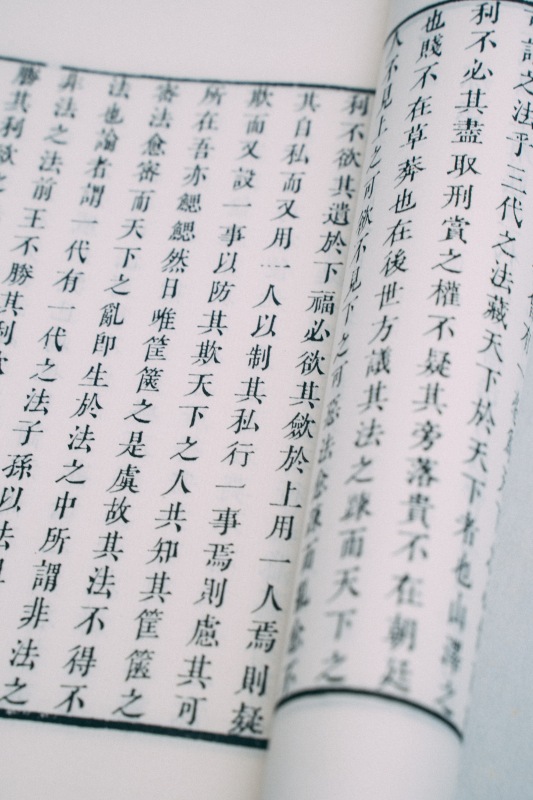 謂之法乎三代之法藏天下於天下者也山澤之
利不必其盡取刑賞之權不疑其旁落貴不在朝廷
也賤不在草莽也在後世方議其法之疎而天下之
人不見上之可欲不見下之可惡法愈疎而亂愈不
利不欲其遺於下福必欲其斂於上用一人焉則疑
其自私而又用一人以制其私行一事焉則慮其可
欺而又設一事以防其欺天下之人共知其筐篋之
所在吾亦鰓鰓然日唯筐篋之是虞故其法不得不
審法愈審而天下之亂卽生於法之中所謂非法之
法也論者謂一代有一代之法子孫以法
非法之法前王不勝其利欲
勝其利欲之